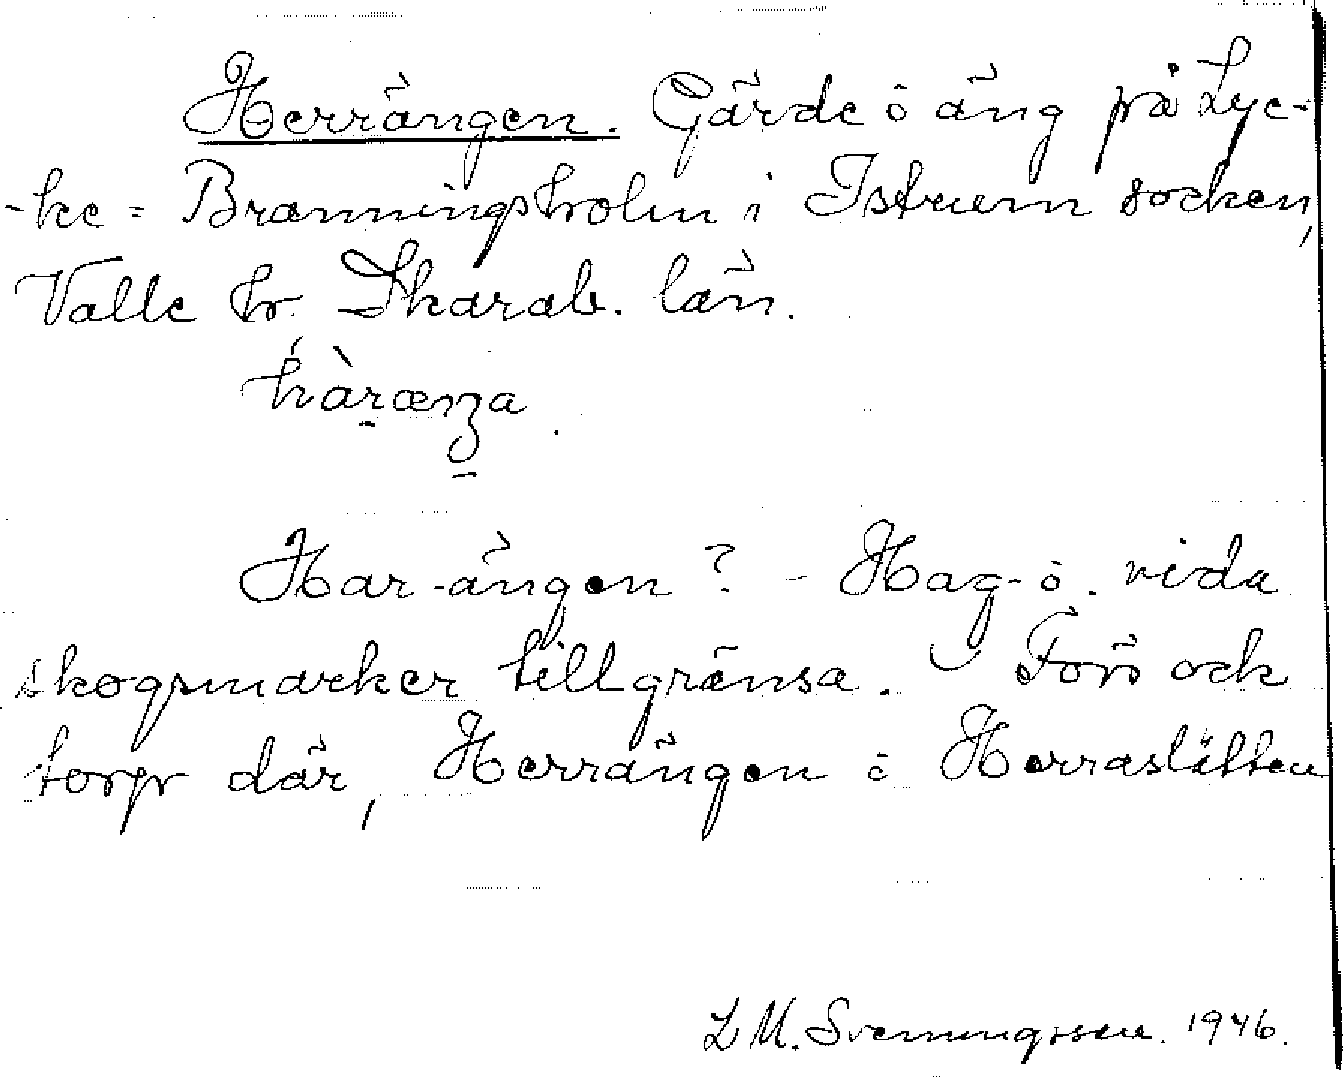 Herrängen. Gärde o äng på Lyc-
-ke = Branningsholm i Istrum socken,
Valle hr. Skarab. län.
hàrænʒa.
Har-ängen? - Hag- o. vida
skogsmarker tillgränsa. Förr ock
torp där, Herrängen o Herraslätten
L M. Svenningsson. 1946.